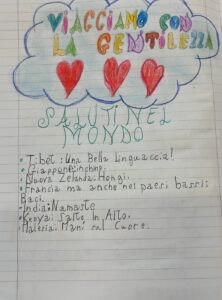 VIAGGIAMO CON
LA GENTILEZZA
SALUTI NEL
MONDO
• Tibet: Una Bella Linguaccia!
• Giappone: inchino.
• Nuova Zelanda: Hongi.
• Francia ma anche nei paesi bassi:
Baci.
• India: Namaste
• Kenya: Salto In Alto.
• Malesia: Mani sul Cuore.